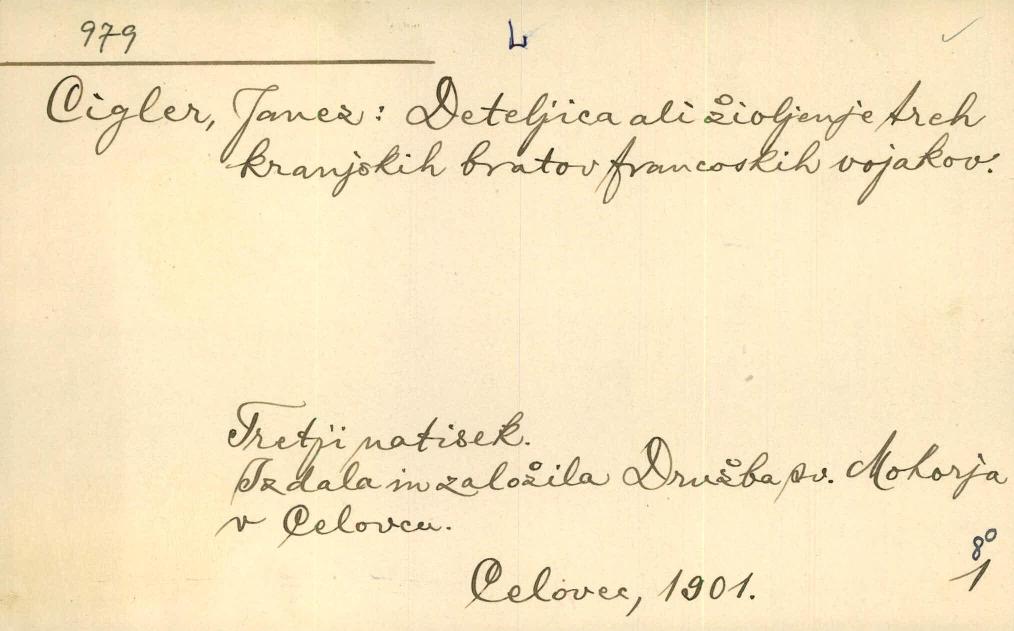 979
L
Cigler, Janez: Deteljica ali življenje treh
kranjskih bratov francoskih vojakov.
Tretji natisek.
Izdala in založila Družba sv. Mohorja
v Celovcu.
8°
Celovec, 1901.
1